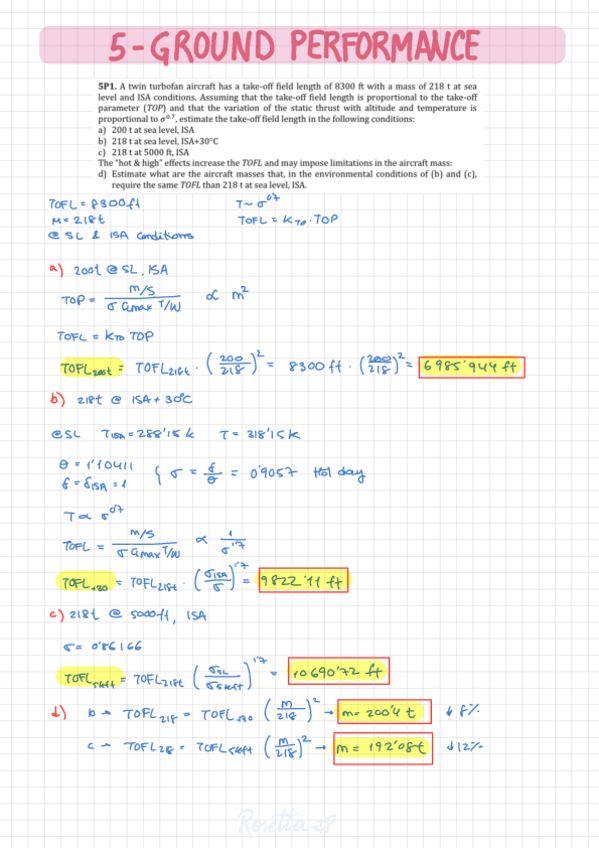 5-GROUND PERFORMANCE
5P1. A twin turbofan aircraft has a take-off field length of 8300 ft with a mass of 218 t at sea
level and ISA conditions. Assuming that the take-off field length is proportional to the take-off
parameter (TOP) and that the variation of the static thrust with altitude and temperature is
proportional to σ^0.7, estimate the take-off field length in the following conditions:
a) 200 t at sea level, ISA
b) 218 t at sea level, ISA+30°C
c) 218 t at 5000 ft, ISA
The "hot & high" effects increase the TOFL and may impose limitations in the aircraft mass:
d) Estimate what are the aircraft masses that, in the environmental conditions of (b) and (c),
require the same TOFL than 218 t at sea level, ISA.
TOFL = 8300 ft T ~ σ^0'7
M = 218 t TOFL = K_TO · TOP
@ SL & ISA conditions
a) 200t @ SL, ISA
TOP = (M/S) / (σ CLmax T/W) ∝ m^2
TOFL = K_TO TOP
TOFL_200t = TOFL_218t · (200/218)^2 = 8300 ft · (200/218)^2 = 6985'944 ft
b) 218t @ ISA + 30°C
@SL T_ISA = 288'15 K T = 318'15 K
θ = 1'10411
δ = δ_ISA = 1 { σ = δ/θ = 0'9057 Hot day
T ∝ σ^0'7
TOFL = (M/S) / (σ CLmax T/W) ∝ 1/σ^1'7
TOFL_+30 = TOFL_218t · (σ_ISA/σ)^1'7 = 9822'11 ft
c) 218t @ 5000 ft, ISA
σ = 0'86166
TOFL_5kft = TOFL_218t (σ_SL/σ_5kft)^1'7 = 10690'72 ft
d) b → TOFL_218 = TOFL_+30 (m/218)^2 → m = 200'4 t ↓ 8%
c → TOFL_218 = TOFL_5kft (m/218)^2 → m = 192'08t ↓12%
Rosetta